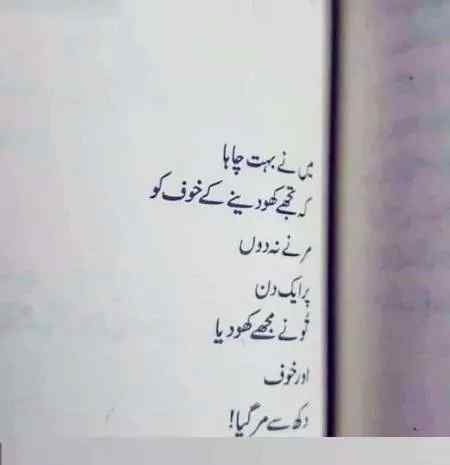 میں نے بہت چاہا
کہ تجھے کھو دینے کے خوف کو
مرنے نہ دوں
پر ایک دن
تُو نے مجھے کھو دیا
اور خوف
دکھ سے مر گیا!